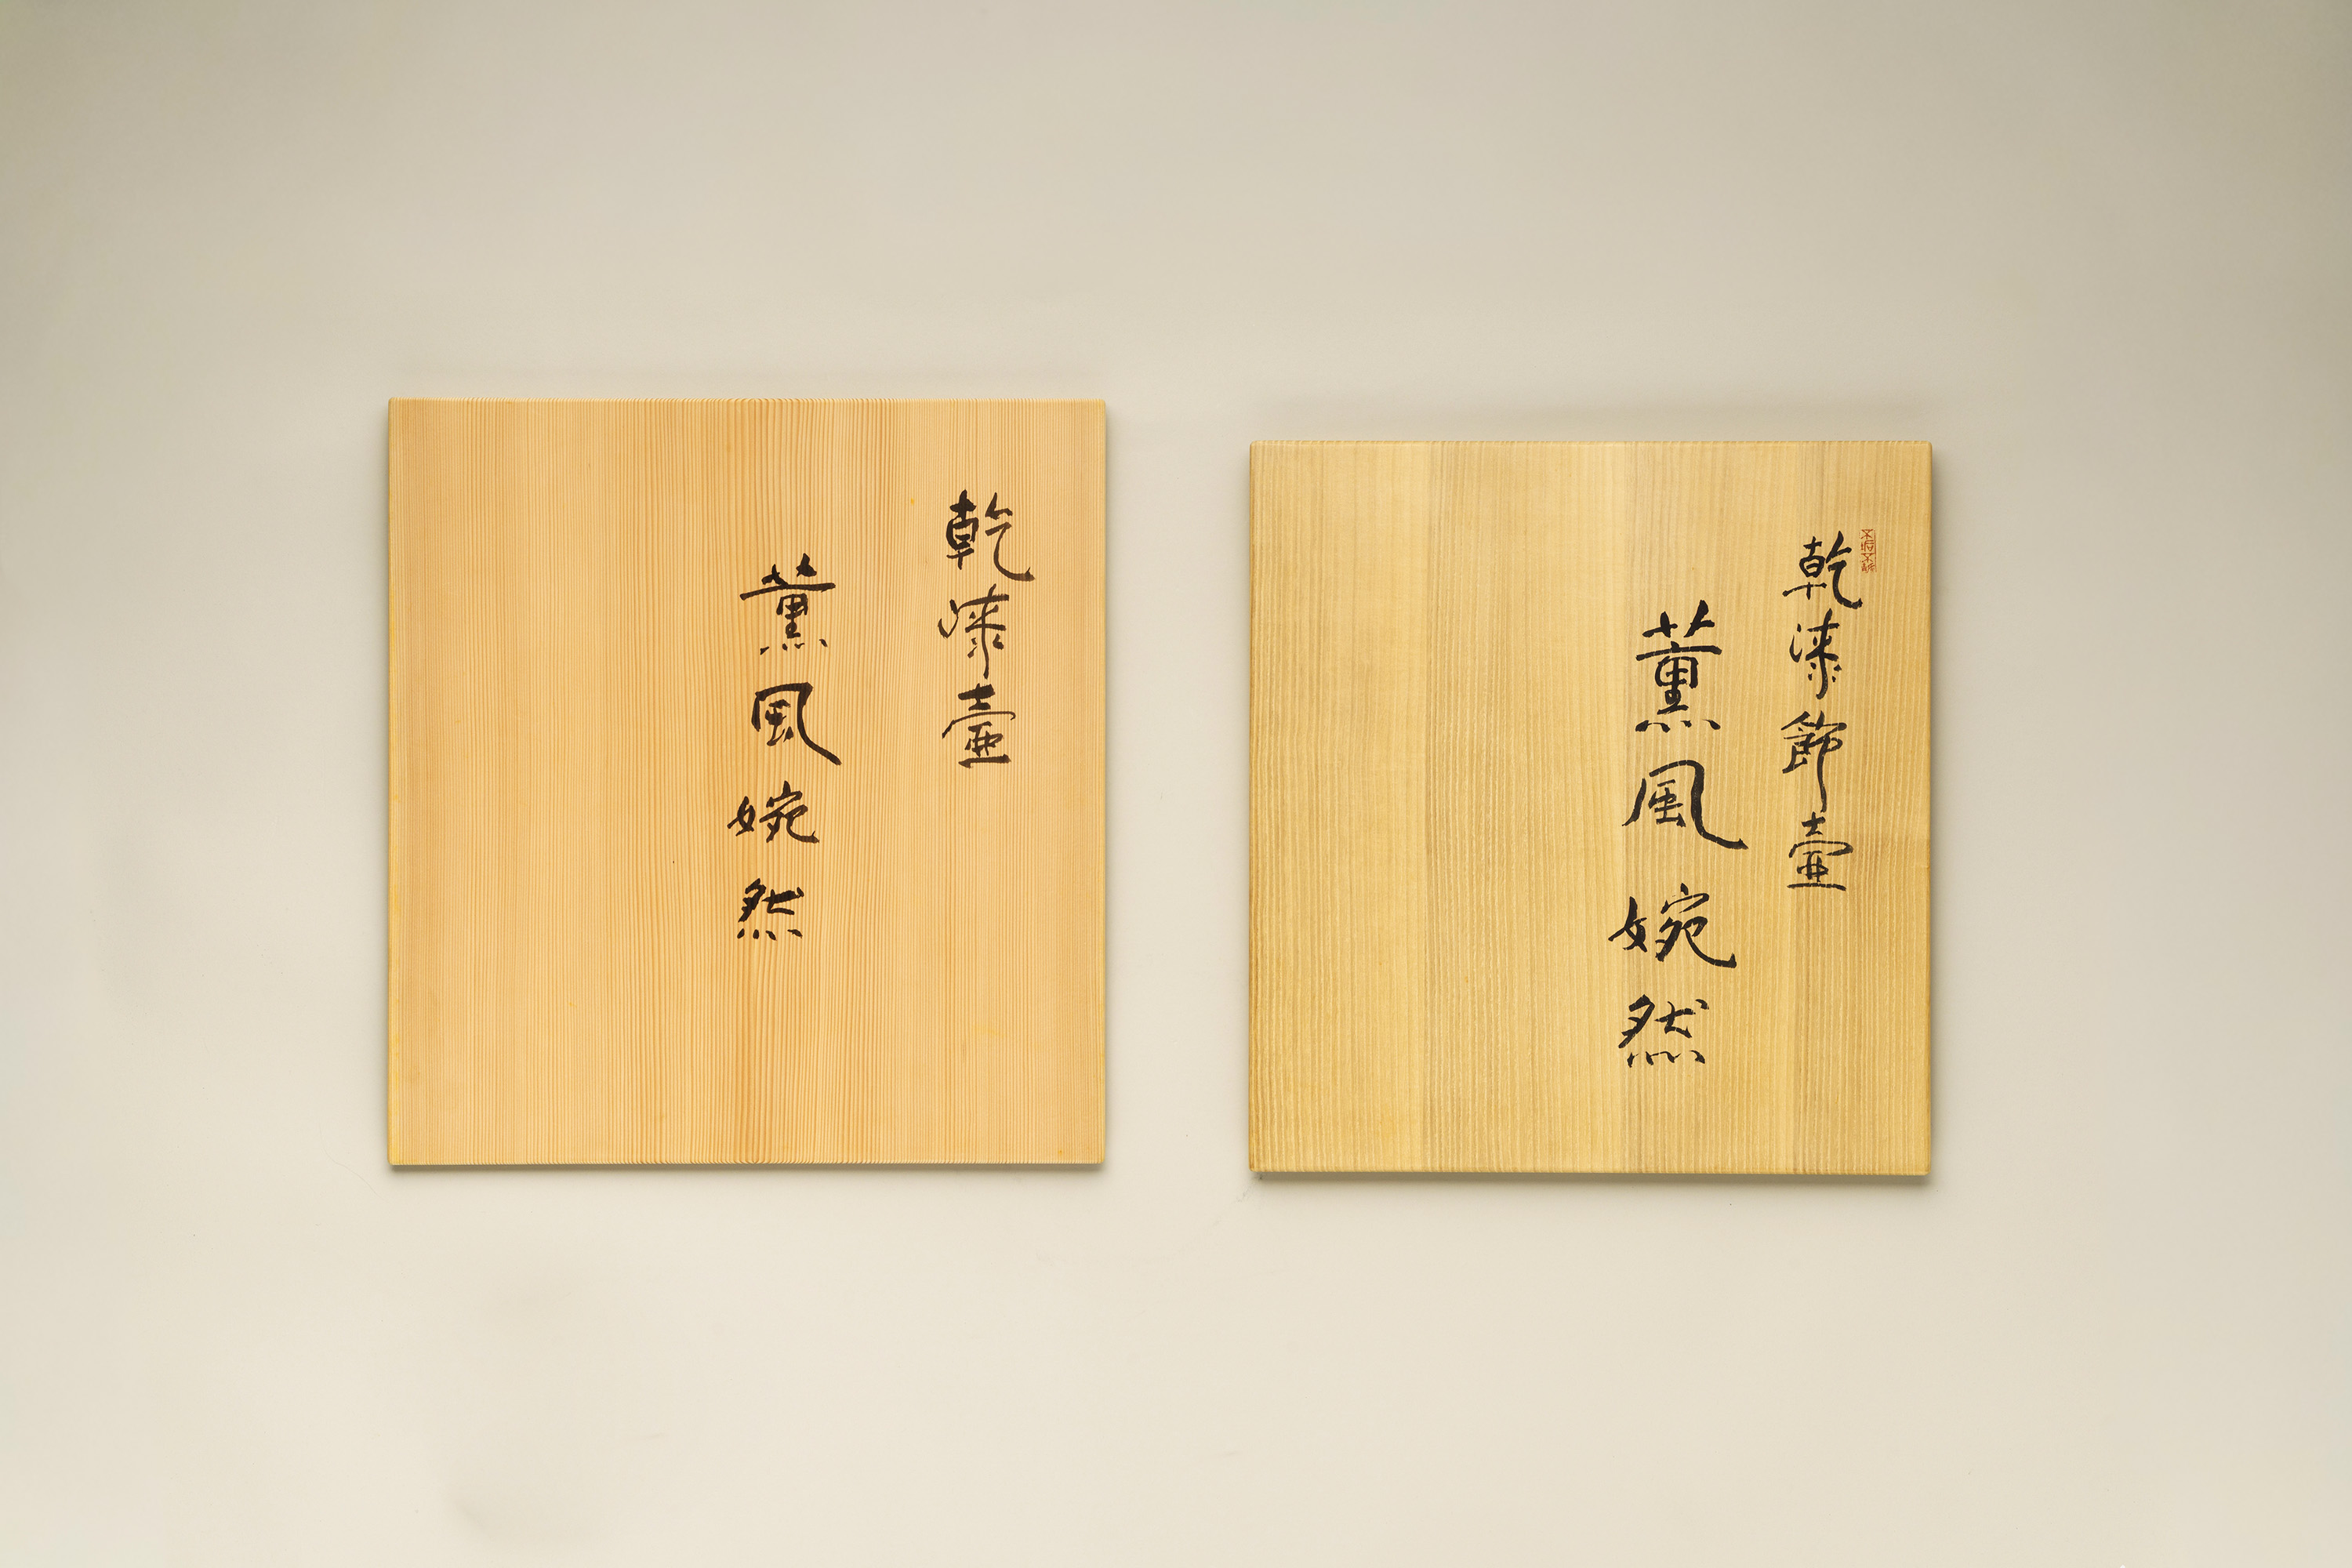 乾漆壷
薫風婉然
乾漆節壷
薫風婉然